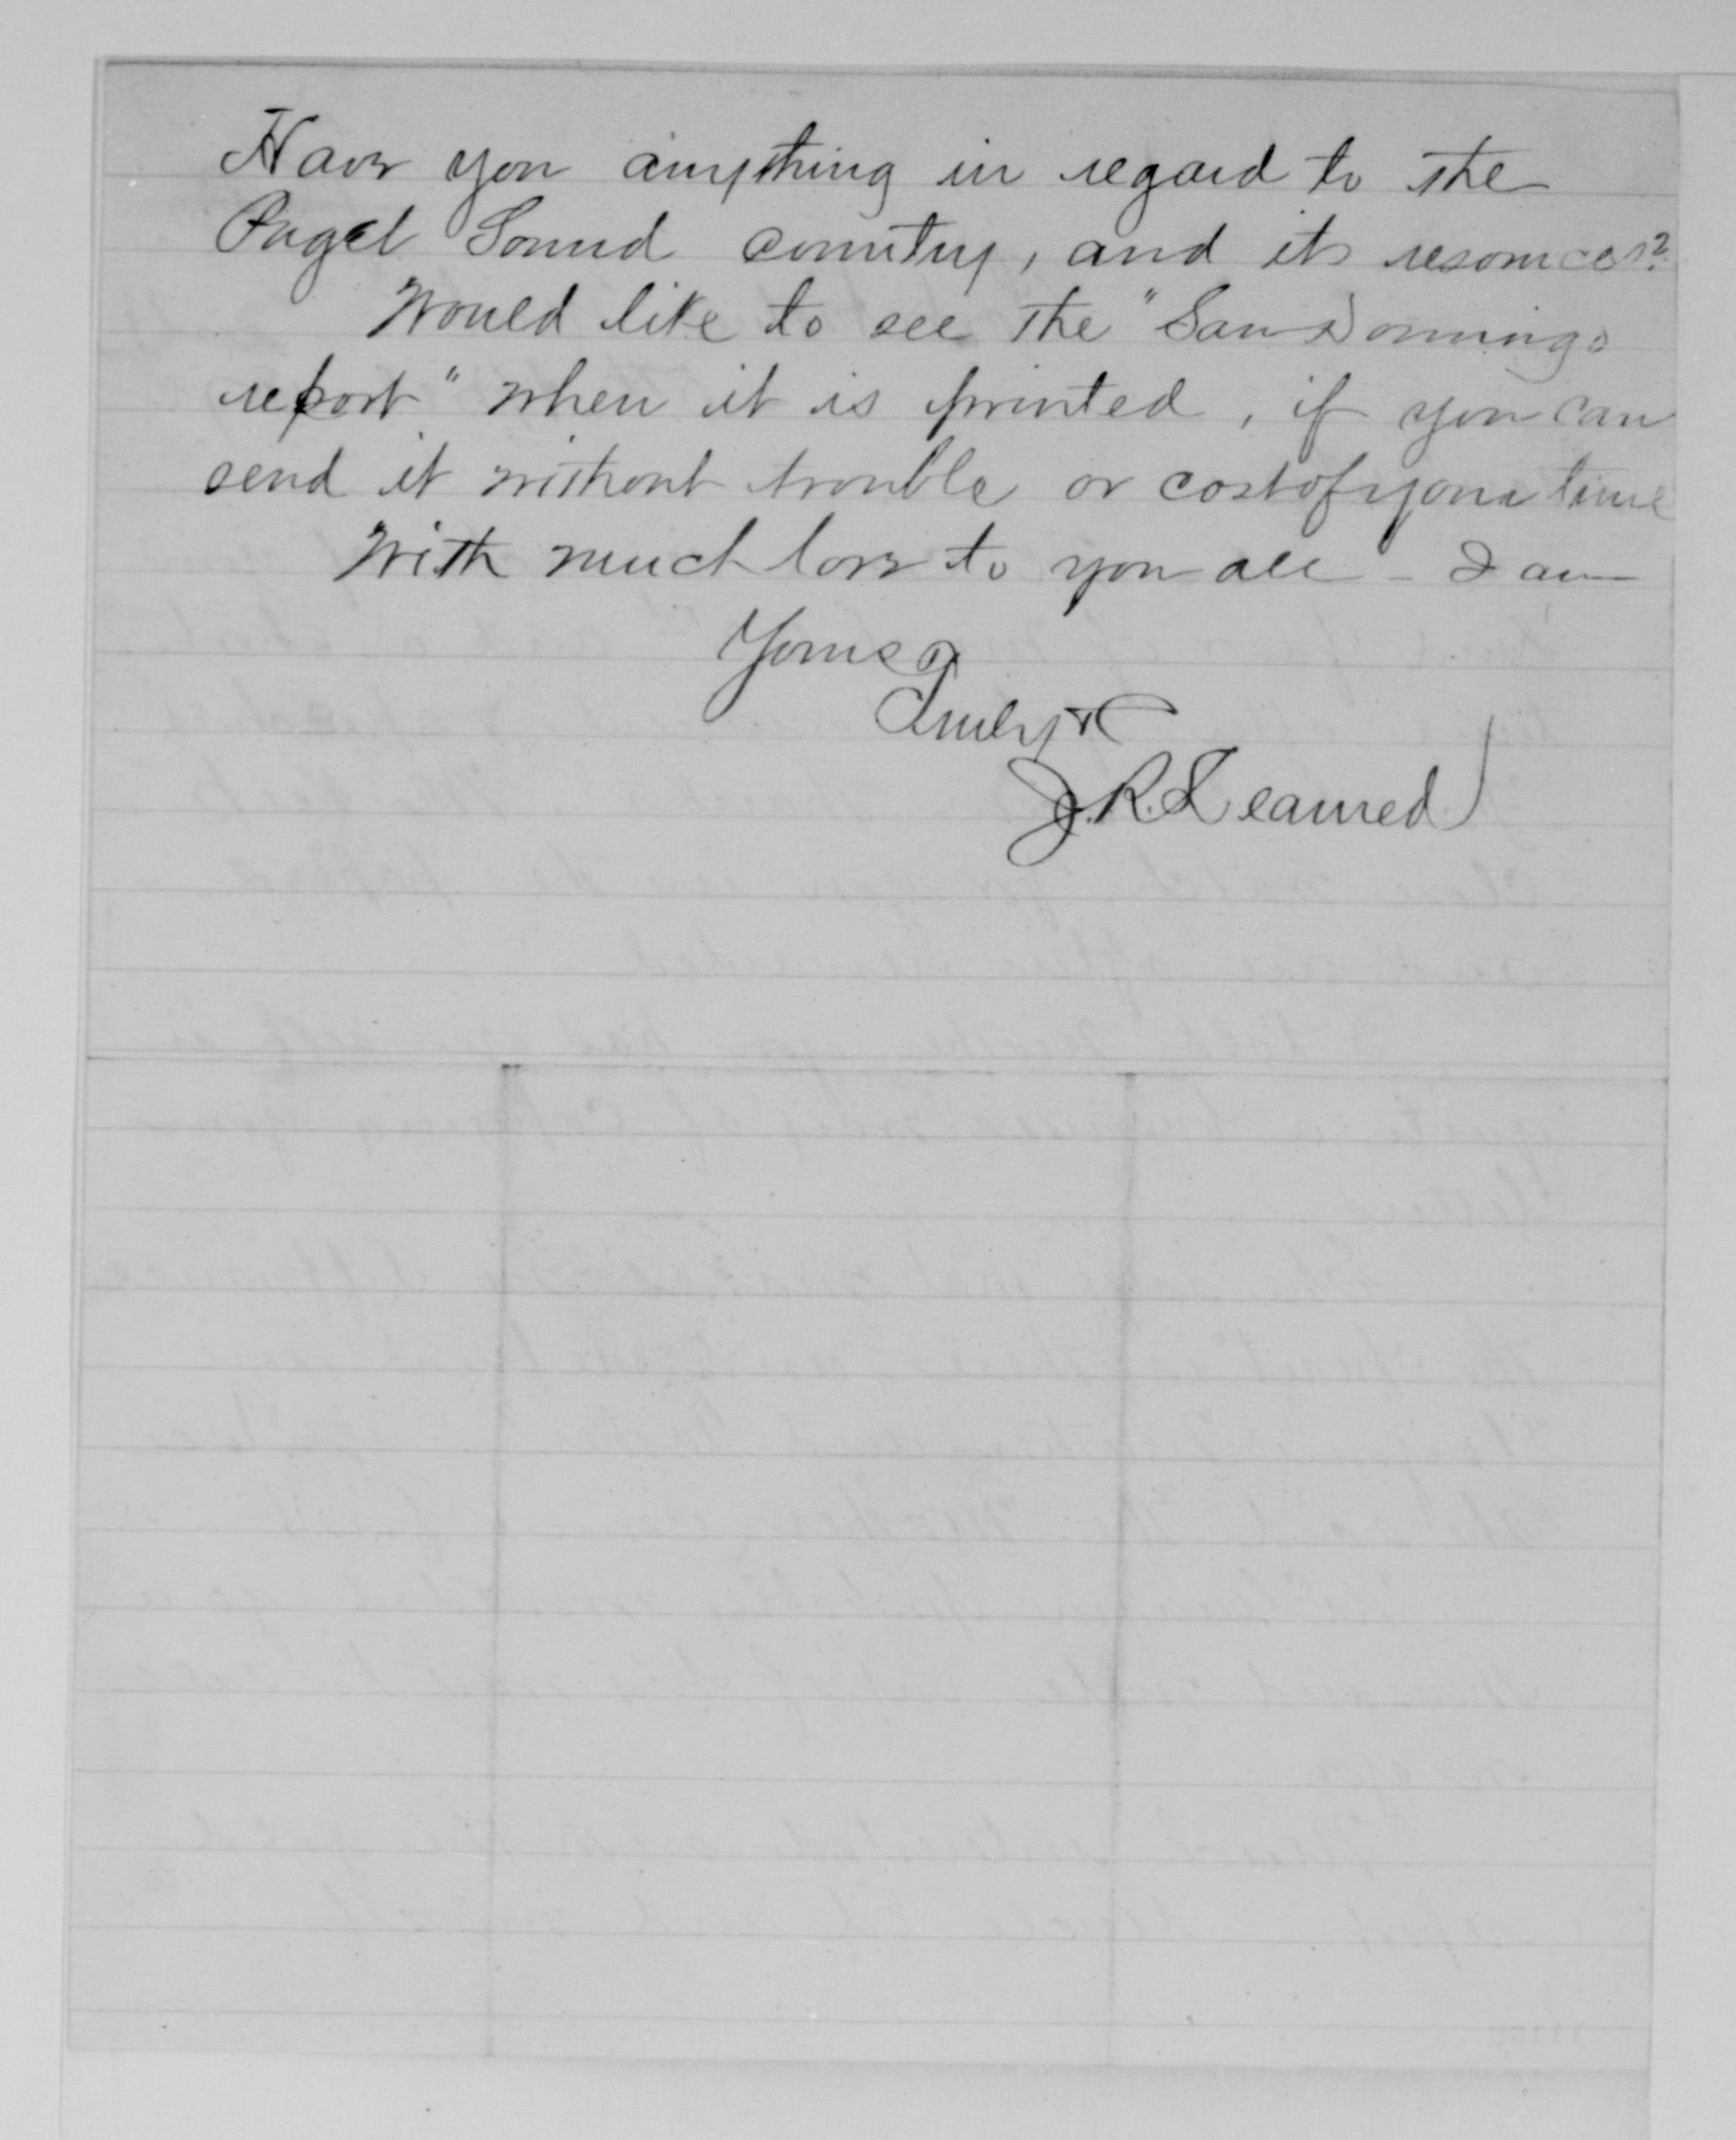 Have you anything in regard to the
Puget Sound country, and its resources?
Would like to see the "San Domingo
report" when it is printed, if you can
send it without trouble or cost of your time
With much love to you all - I am
Yours
Truly &c
J. R. Learned